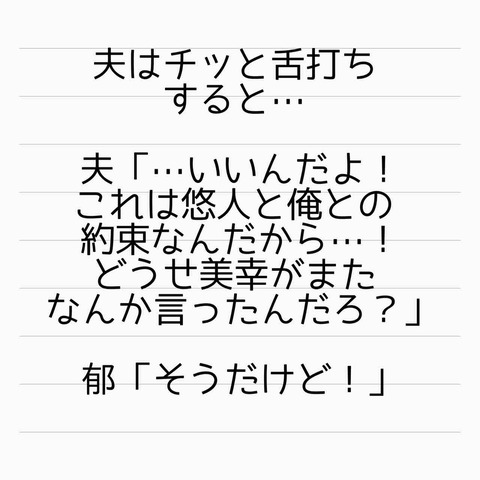 夫はチッと舌打ち
すると…
夫「…いいんだよ！
これは悠人と俺との
約束なんだから…！
どうせ美幸がまた
なんか言ったんだろ？」
郁「そうだけど！」